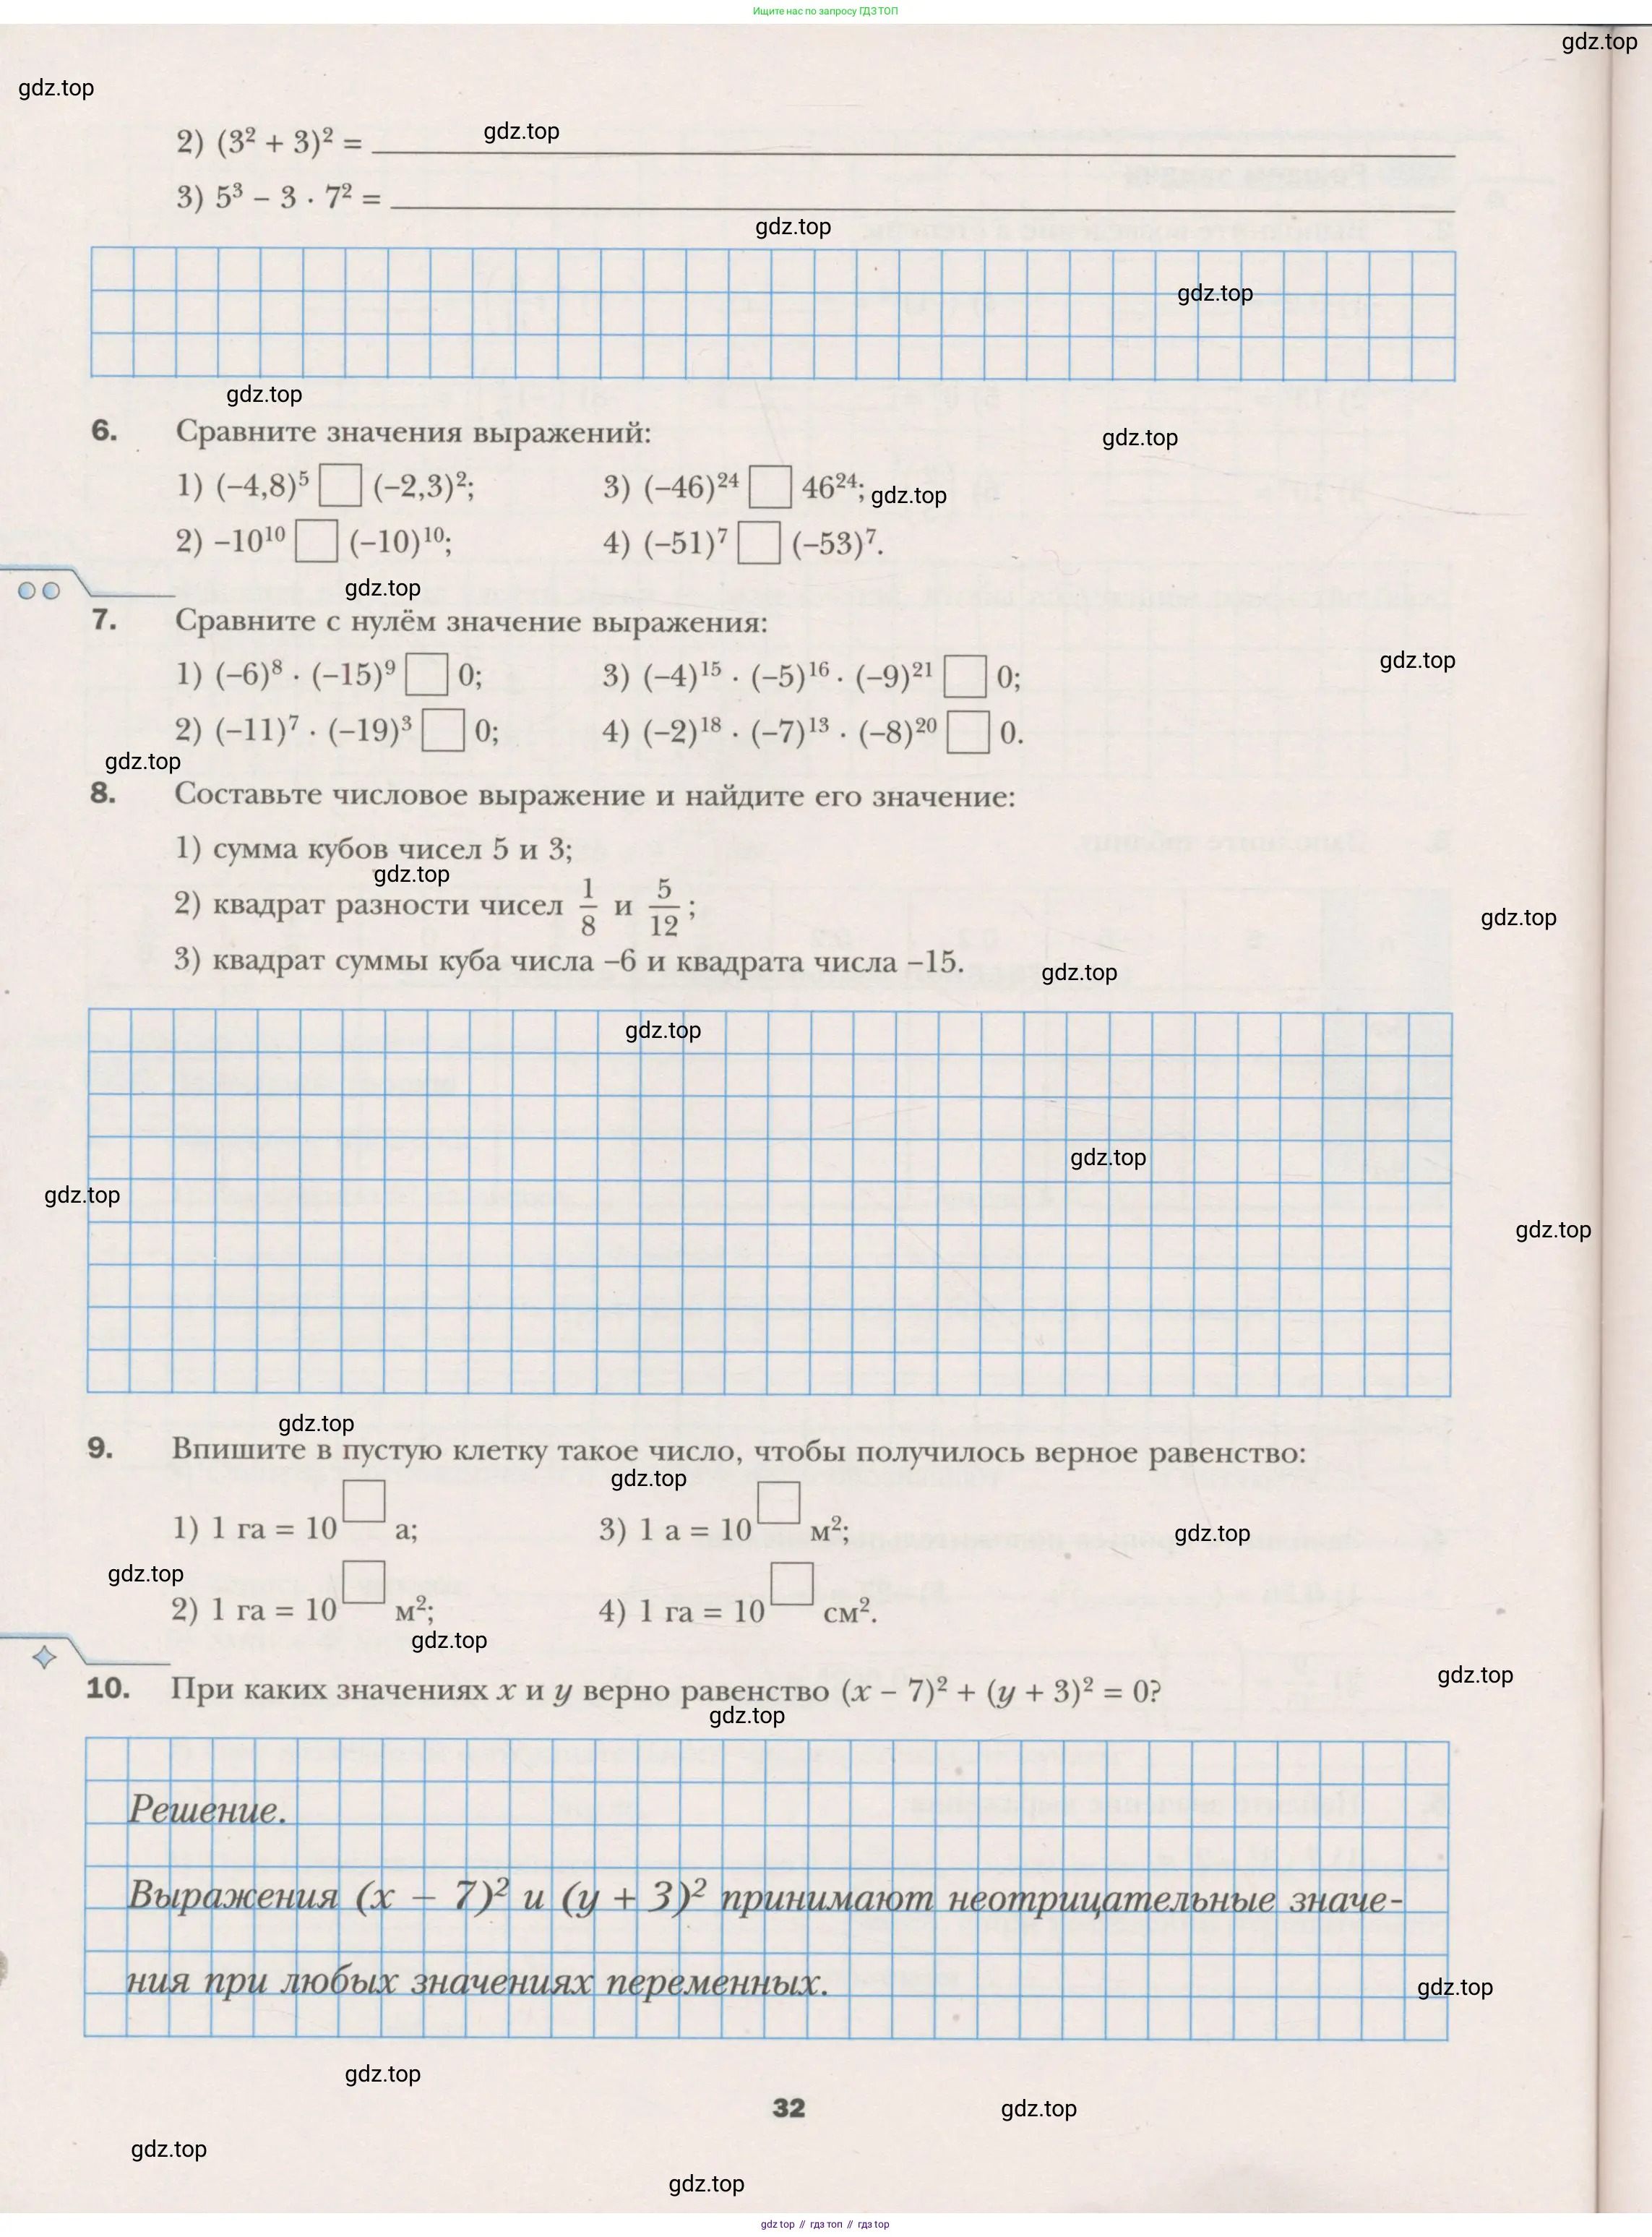 Ищите нас по запросу ГДЗ ТОП
gdz.top
gdz.top
gdz.top
2) (3² + 3)² =
3) 5³ – 3 · 7² =
gdz.top
gdz.top
gdz.top
6. Сравните значения выражений:
gdz.top
1) (–4,8)⁵ □ (–2,3)²; 3) (–46)²⁴ □ 46²⁴; gdz.top
2) –10¹⁰ □ (–10)¹⁰; 4) (–51)⁷ □ (–53)⁷.
gdz.top
7. Сравните с нулём значение выражения:
gdz.top
1) (–6)⁸ · (–15)⁹ □ 0; 3) (–4)¹⁵ · (–5)¹⁶ · (–9)²¹ □ 0;
2) (–11)⁷ · (–19)³ □ 0; 4) (–2)¹⁸ · (–7)¹³ · (–8)²⁰ □ 0.
gdz.top
8. Составьте числовое выражение и найдите его значение:
1) сумма кубов чисел 5 и 3;
gdz.top
2) квадрат разности чисел 1/8 и 5/12;
gdz.top
3) квадрат суммы куба числа –6 и квадрата числа –15.
gdz.top
gdz.top
gdz.top
gdz.top
gdz.top
gdz.top
9. Впишите в пустую клетку такое число, чтобы получилось верное равенство:
gdz.top
1) 1 га = 10□ а; 3) 1 а = 10□ м²;
gdz.top
gdz.top
2) 1 га = 10□ м²; 4) 1 га = 10□ см².
gdz.top
gdz.top
10. При каких значениях x и y верно равенство (x – 7)² + (y + 3)² = 0?
gdz.top
Решение.
Выражения (x – 7)² и (y + 3)² принимают неотрицательные значе-
ния при любых значениях переменных.
gdz.top
gdz.top
32
gdz.top
gdz.top
gdz.top
gdz top // гдз топ // гдз top